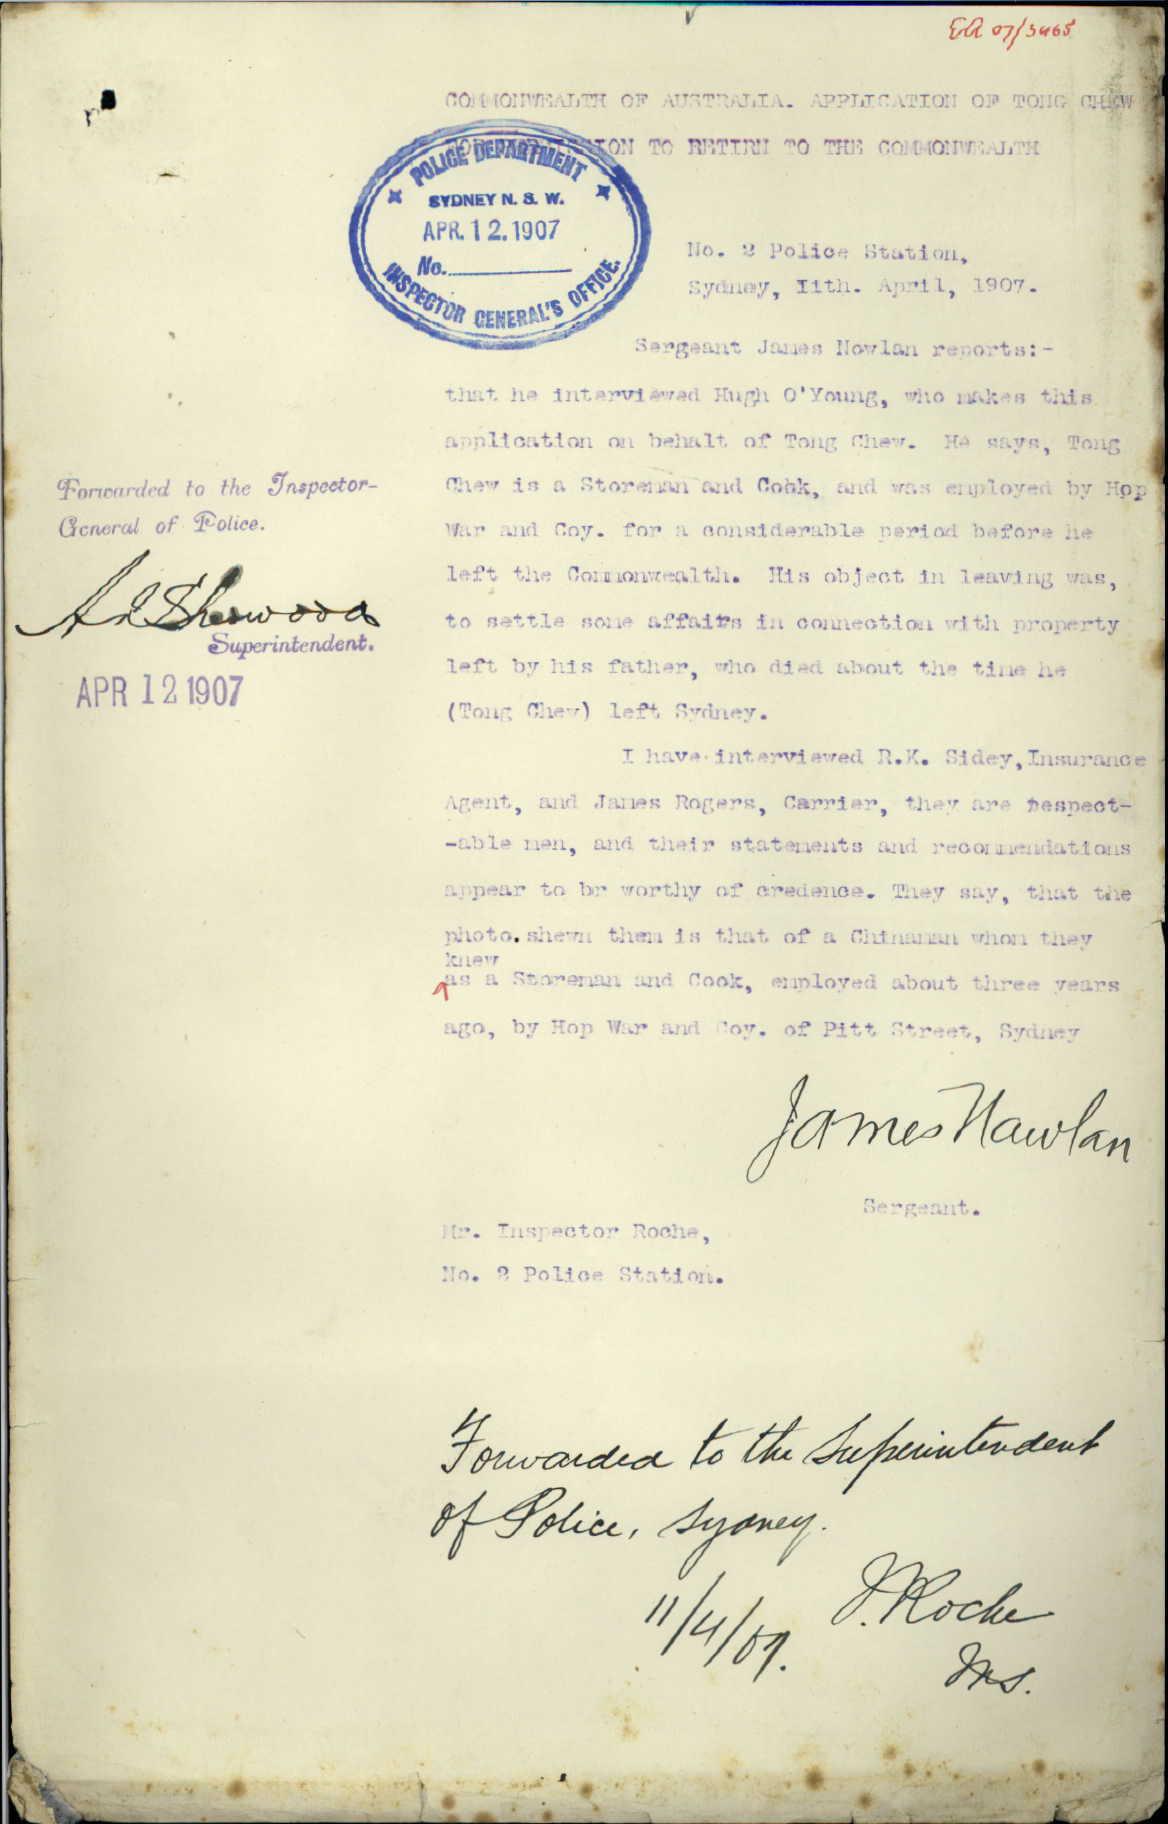 07/3465
COMMONWEALTH OF AUSTRALIA. APPLICATION OF TONG CHEW
TO RETIRN TO THE COMMONWEALTH
POLICE DEPARTMENT
SYDNEY N. S. W.
APR. 12. 1907
No.
INSPECTOR GENERAL'S OFFICE.
No. 2 Police Station,
Sydney, IIth. April, 1907.
Sergeant James Nowlan reports:-
that he interviewed Hugh O'Young, who makes this
application on behalt of Tong Chew. He says, Tong
Chew is a Storeman and Cook, and was employed by Hop
War and Coy. for a considerable period before he
left the Commonwealth. His object in leaving was,
to settle some affairs in connection with property
left by his father, who died about the time he
(Tong Chew) left Sydney.
Forwarded to the Inspector-
General of Police.
Sherwood
Superintendent.
APR 12 1907
I have interviewed R.K. Sidey, Insurance
Agent, and James Rogers, Carrier, they are respect-
-able men, and their statements and recommendations
appear to br worthy of credence. They say, that the
photo. shewn them is that of a Chinaman whom they
knew
as a Storeman and Cook, employed about three years
ago, by Hop War and Coy. of Pitt Street, Sydney
James Nowlan
Sergeant.
Mr. Inspector Roche,
No. 2 Police Station.
Forwarded to the Superintendent
of Police, Sydney.
11/4/07. J. Roche
Ins.